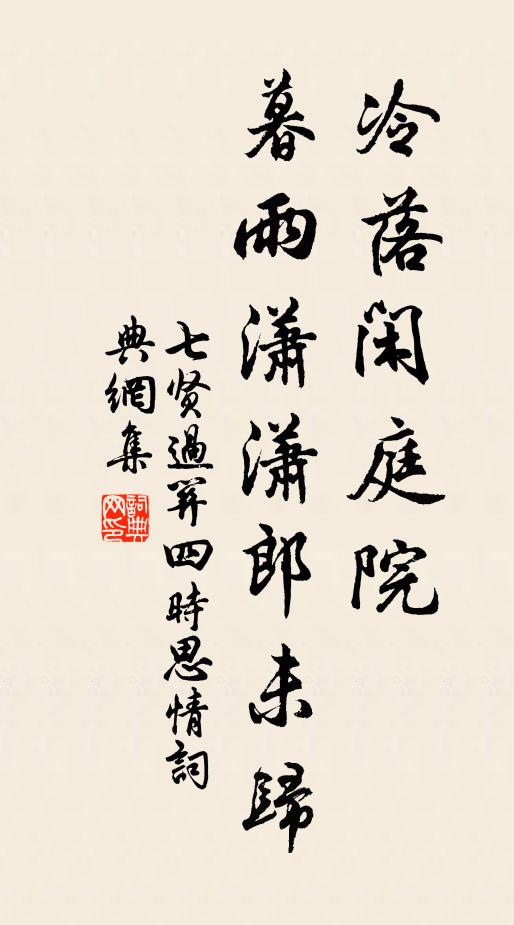 冷落闲庭院
暮雨潇潇郎未歸
七贤過關四時思情詞
典網集
詞典网印